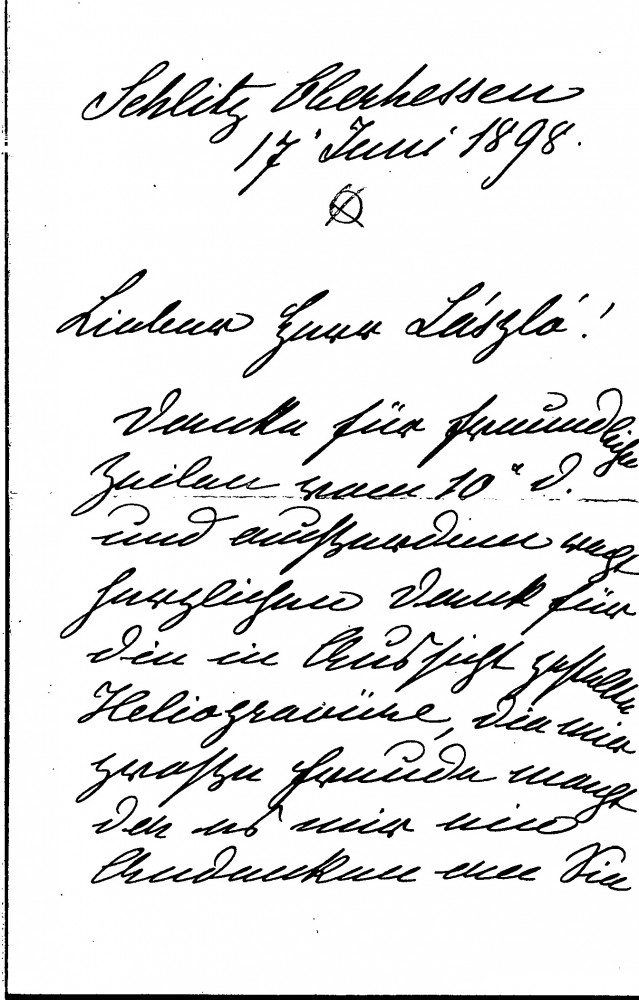 Schlitz Oberhessen
17' Juni 1898.
Lieber Herr László!
Danke für freundliche
Zeilen vom 10ᵗ d.
und außerdem recht
herzlichen Dank für
die in Aussicht gestellte
Heliogravüre, die mir
große Freude macht
da es mir ein
Andenken an Sie